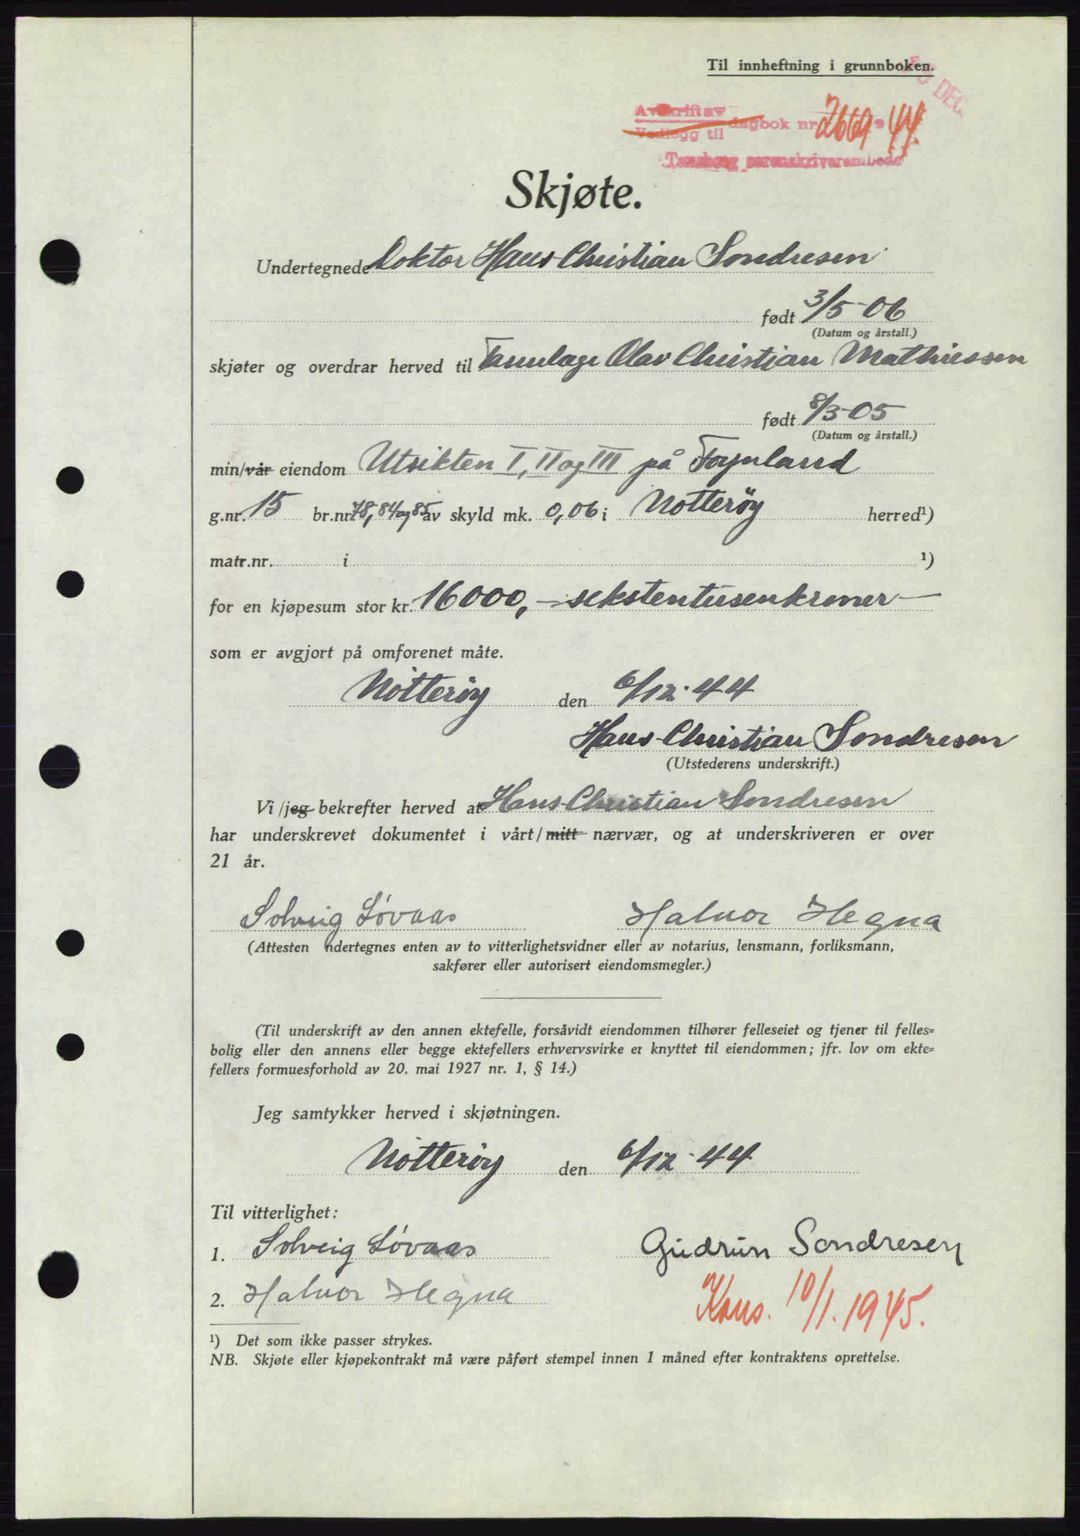 Til innheftning i grunnboken.
DEC.
Avskrift av
Vedlegg til dagbok nr. 2669 - 44.
Tønsberg sorenskriverembede
Skjøte.
Undertegnede Doktor Hans Christian Sondresen
født 3/5-06
(Datum og årstall.)
skjøter og overdrar herved til Tannlæge Olav Christian Mathiessen
født 8/3-05
(Datum og årstall.)
min/vår eiendom Utsikten I, II og III på Føynland
g.nr. 15 br.nr. 78, 84 og 85 av skyld mk. 0,06 i Nøtterøy herred¹)
matr.nr. i ¹)
for en kjøpesum stor kr. 16000,- sekstentusenkroner
som er avgjort på omforenet måte.
Nøtterøy den 6/12-44
Hans Christian Sondresen
(Utstederens underskrift.)
Vi/jeg bekrefter herved at Hans Christian Sondresen
har underskrevet dokumentet i vårt/mitt nærvær, og at underskriveren er over
21 år.
Solveig Løvaas Halvor Hegna
(Attesten ndertegnes enten av to vitterlighetsvidner eller av notarius, lensmann, forliksmann,
sakfører eller autorisert eiendomsmegler.)
(Til underskrift av den annen ektefelle, forsåvidt eiendommen tilhører felleseiet og tjener til felles=
bolig eller den annens eller begge ektefellers erhvervsvirke er knyttet til eiendommen; jfr. lov om ekte=
fellers formuesforhold av 20. mai 1927 nr. 1, § 14.)
Jeg samtykker herved i skjøtningen.
Nøtterøy den 6/12-44
Til vitterlighet:
1. Solveig Løvaas Gudrun Sondresen
2. Halvor Hegna Kons. 10/1.1945.
¹) Det som ikke passer strykes.
NB. Skjøte eller kjøpekontrakt må være påført stempel innen 1 måned efter kontraktens oprettelse.